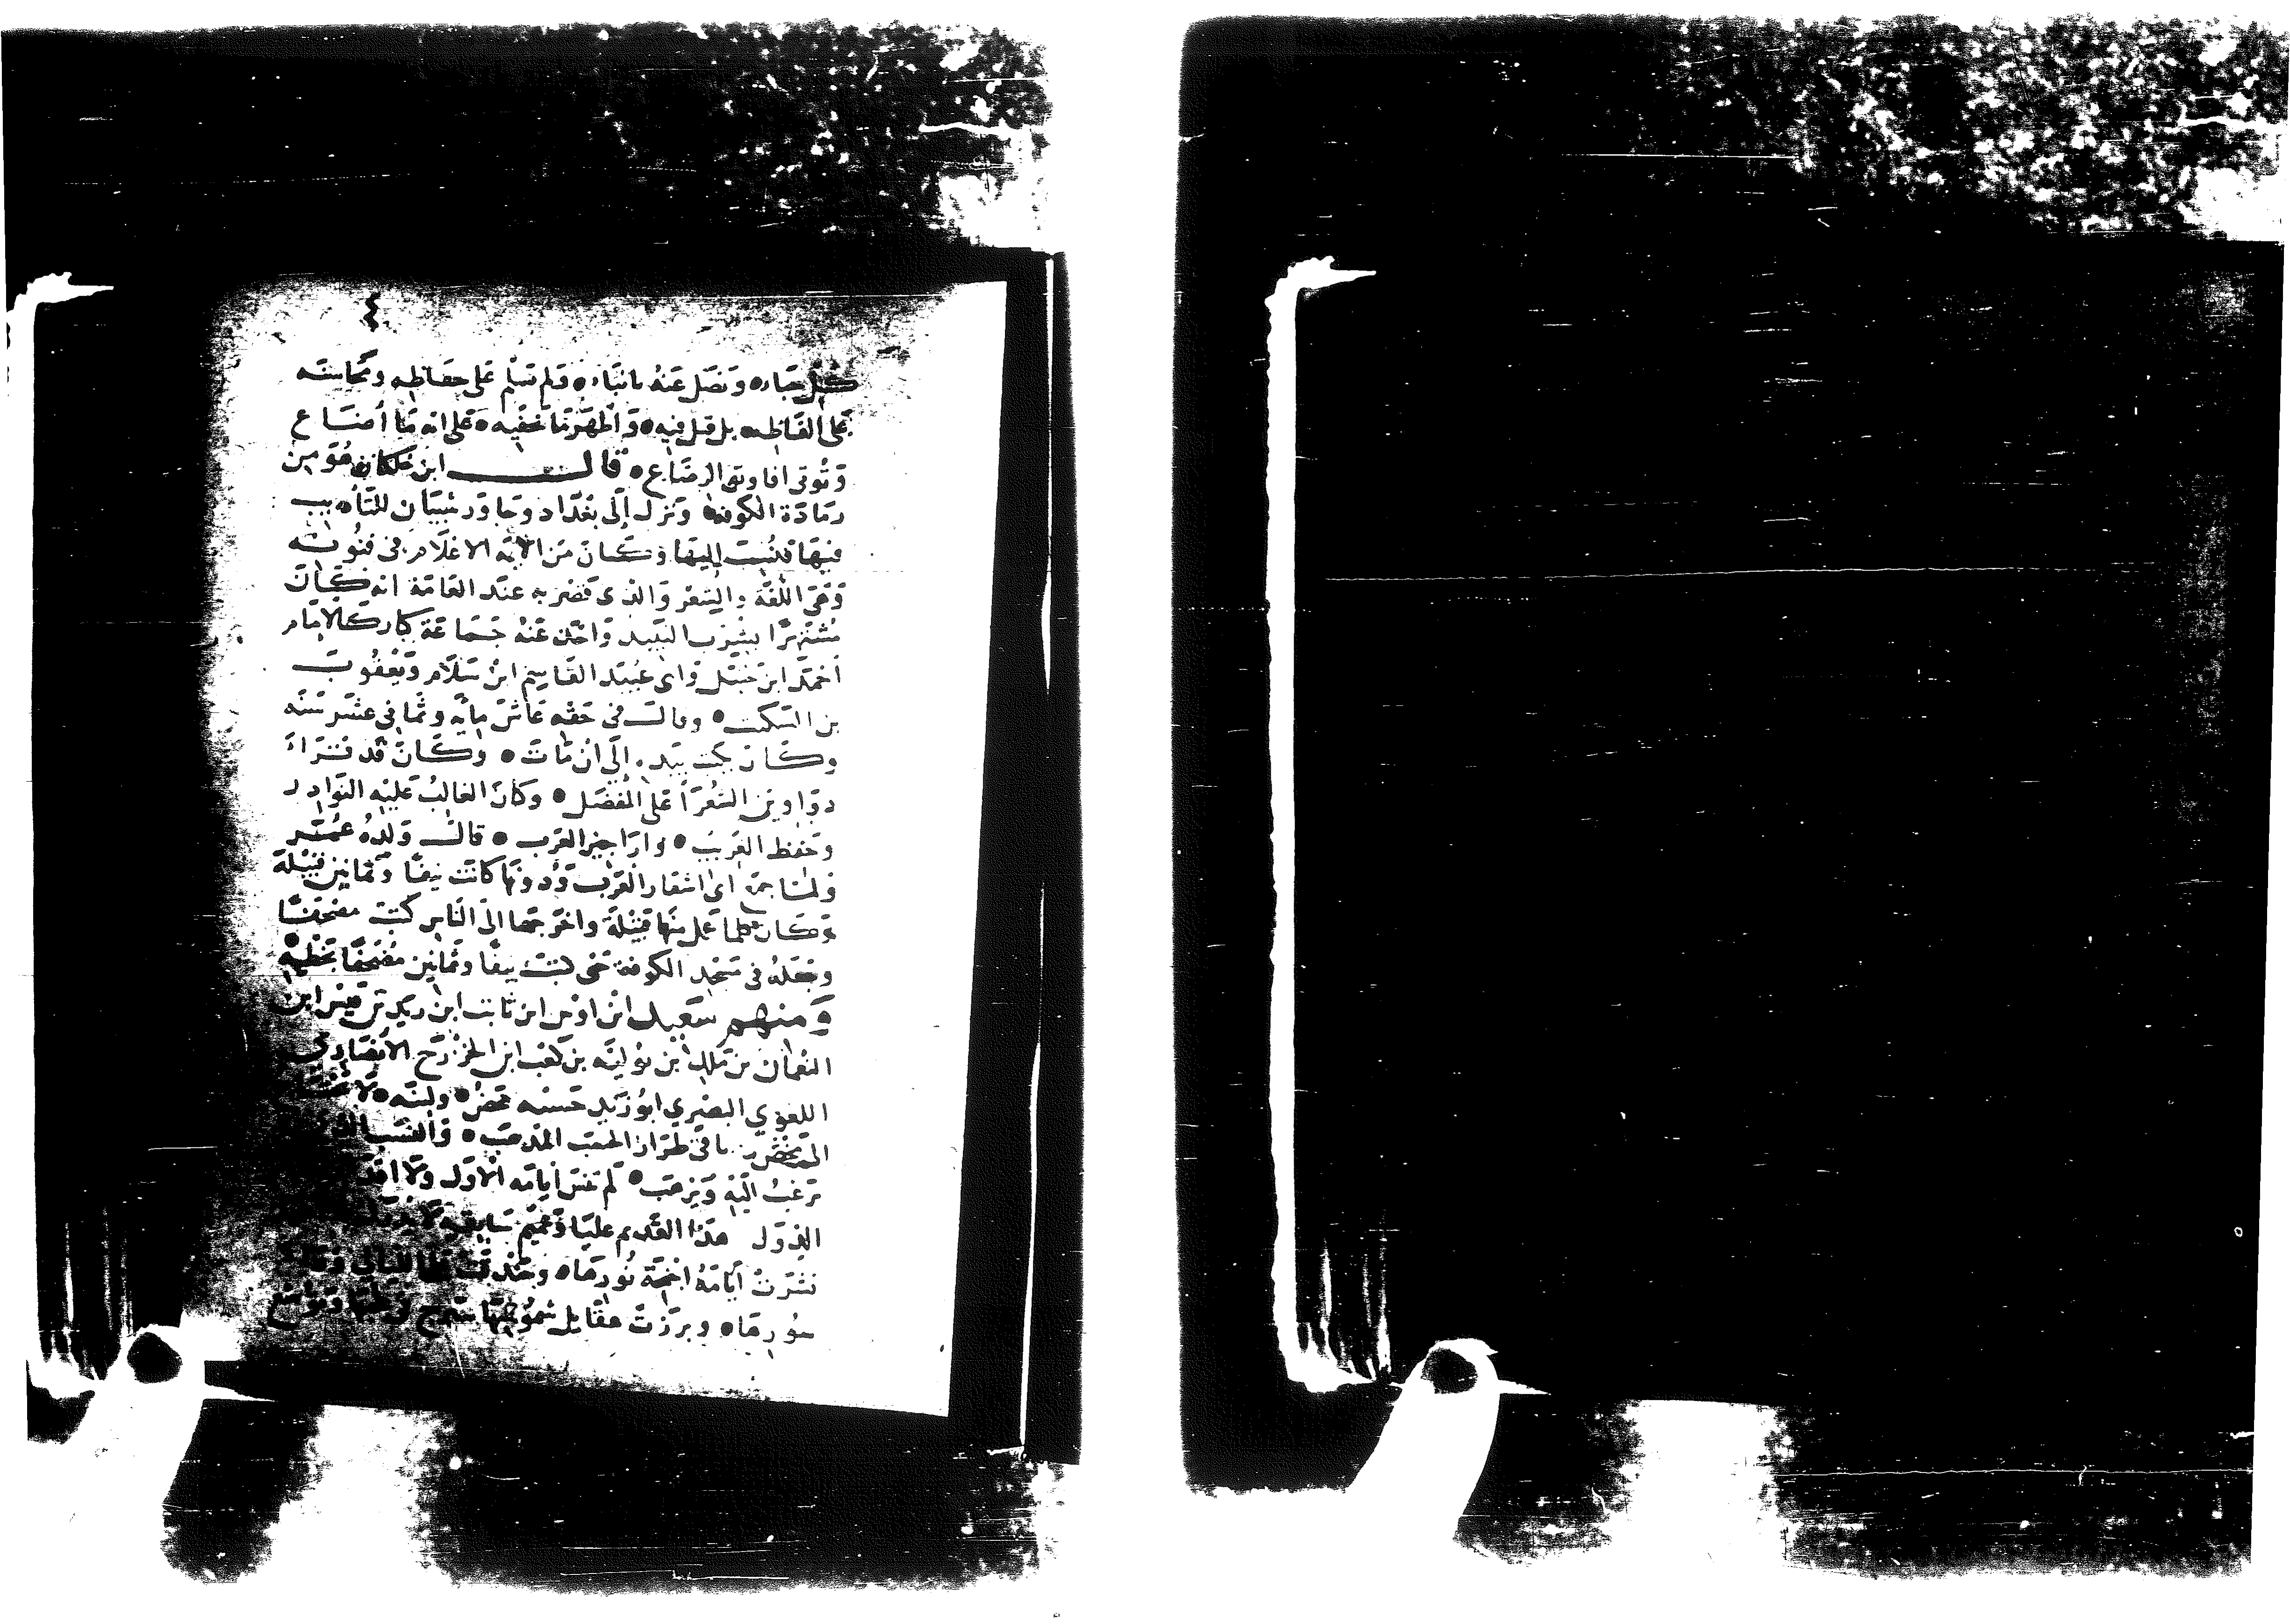 كل جباره وتضل عنه بانتباه ولم تسلم على حفاظه ومحاسنه
على الفاظه بل قيل فيه واظهر ما تخفيه على انه ما اضاع
وتوتى افاويق الرضاع قال ابن خلكان هو من
رمادة الكوفه ونزل إلى بغداد وجاور شيبان للتأديب
فيها فنسب إليها وكان من الايمه الاعلام في فنونه
وهي اللغة والشعر والذي قصر به عند العامة انه كان
مشتهرا بشرب النبيد واخذ عنه جماعة كبار كالامام
احمد ابن حنبل وابي عبيد القاسم ابن سلام ويعقوب
بن السكيت وقالت في حقه عاش مايه وثماني عشر سنه
وكان يكتب بيده إلى ان مات وكان قد قراء
دواوين الشعرا على المفضل وكان الغالب عليه النوادر
وحفظ الغريب واراجيز العرب قال ولده عمر
ولما جمع ابي اشعار العرب ودونها كانت نيفا وثمانين قبيلة
وكان كلما عمل منها قبيلة واخرجها الى الناس كتب مصحفا
وجعله في مسجد الكوفة حتى كتب نيفا وثمانين مصحفا بخطه
ومنهم سعيد ابن اوس ابن ثابت ابن زيد بن قيس ابن
النعمان بن ملك ابن ثعلبة بن كعب ابن الخزرج الانصاري
اللغوي البصري ابو زيد حسبه محض ولبنه لا
باقي طراز الحسب المذهب والنسب
ترغب اليه ويرهب لم تنس أيامه الاول ولا
الدول هذا القديم عليا وعميم سابقه
نشرت أيامه اجنحة نورها وحدقت
سورها وبرزت عقايل شموسها